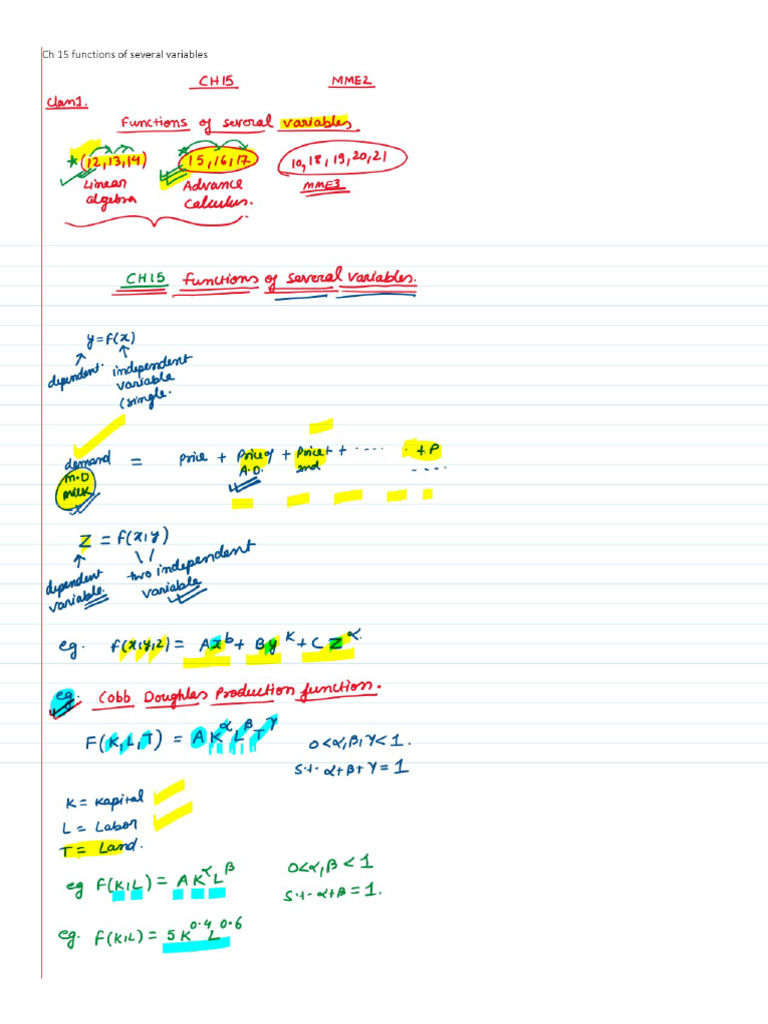 Ch 15 functions of several variables
CH15 MME2
Class1.
Functions of several variables
* (12,13,14) * 15,16,17 10,18,19,20,21
Linear algebra Advance calculus. MME3
CH15 functions of several variables.
y = f(x)
dependent. independent variable (single.
demand = Price + Price of + Price + + ..... . + P
M.D milk A.D. 2nd ....
Z = f(x,y)
dependent variable. two independent variable
eg. f(x,y,z) = Ax^b + By^k + CZ^α.
eg. Cobb Doughlas Production function.
F(K,L,T) = A K^α L^β T^γ 0<α,β,γ<1.
s.t. α+β+γ=1
K = Kapital
L = Labor
T = Land.
eg F(K,L) = A K^α L^β 0<α,β<1
s.t. α+β=1.
eg. F(K,L) = 5 K^0.4 L^0.6